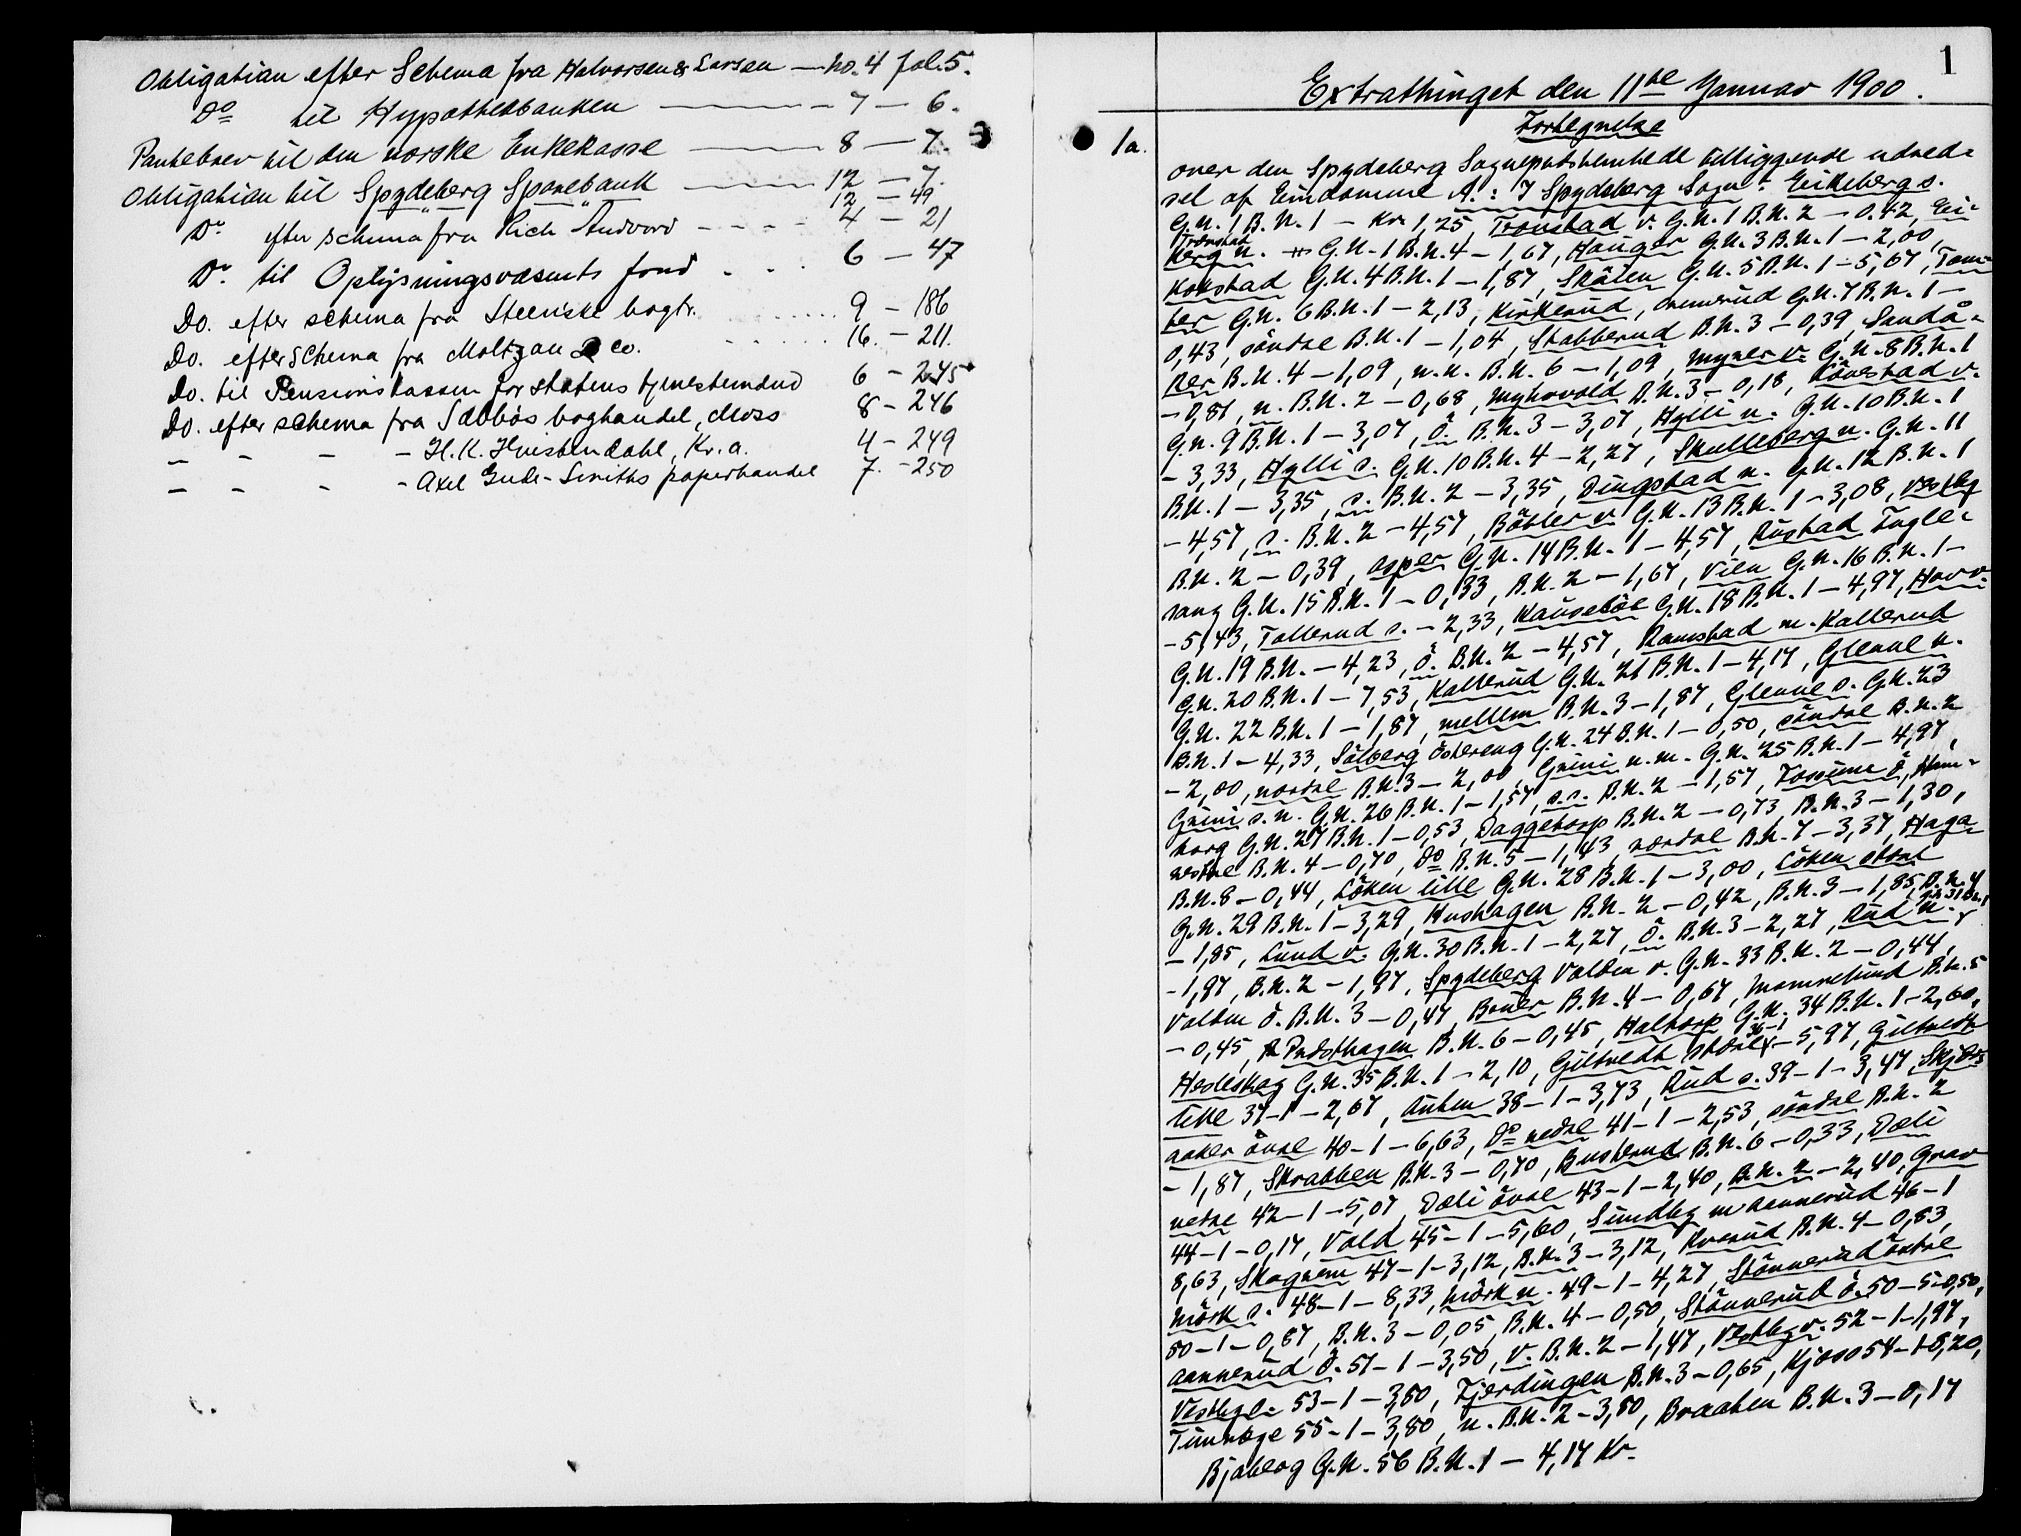 Obligation efter Schema fra Halvorsen & Larsen — No. 4 fol. 5.
Do til Hypothekbanken — 7 — 6.
Pantebrev til den norske Enkekasse — 8 — 7.
Obligation til Spydeberg Sparebank — 12 — 7.
12 — 49
Do efter schema fra Rich Andvord - - - - 4 — 21
Do til Oplysningsvæsenets fond . . . 6 — 47
Do. efter schema fra Steenske bogtr. . . . . 9 — 186
Do. efter schema fra Moltzau & Co. . . . . 16. — 211.
Do. til Pensionskassen for statens tjenestemænd 6 — 245
Do. efter schema fra Sæbbøs boghandel, Moss 8 — 246
— - - - H.K. Hvistendahl, Kr.a. 4 — 249
— - - - Axel Gude-Smiths papirhandel 7. — 250
1
Extrathinget den 11te Januar 1900.
1a.
Fortegnelse
over den Spydeberg Sogneprestembede tilliggende udred-
sel af Eiendomme A.: I Spydeberg Sogn: Eikeberg s.
G.N. 1 B.N. 1 — Kr. 1,25, Tronstad v. G.N. 1 B.N. 2 — 0.42, Ei-
Tronstad
kerg n. G.N. 1 B.N. 4 — 1,67, Hauger G.N. 3 B.N. 1 — 2,00,
Kokstad G.N. 4 B.N. 1 — 1,87, Skålen G.N. 5 B.N. 1 — 5,67, Tom-
ter G.N. 6 B.N. 1 — 2,13, Kirkerud, G.N. 7 B.N. 1 —
0,43, söndre B.N. 1 — 1,04, Stabberud B.N. 3 — 0,39, Sandå-
ker B.N. 4 — 1,09, n.n. B.N. 6 — 1,09, Myrer v. G.N. 8 B.N. 1
— 0,81, n. B.N. 2 — 0,68, Myhrvold B.N. 3 — 0,18, Lövestad v.
G.N. 9 B.N. 1 — 3,07, Ö. B.N. 3 — 3,07, Hylli n. G.N. 10 B.N. 1
— 3,33, Hylli s. G.N. 10 B.N. 4 — 2,27, Skulleberg n. G.N. 11
B.N. 1 — 3,35, s. B.N. 2 — 3,35, Dingstad n. G.N. 12 B.N. 1
— 4,57, s. B.N. 2 — 4,57, Böbler v. G.N. 13 B.N. 1 — 3,08, Vestby
B.N. 2 — 0,39, Asper G.N. 14 B.N. 1 — 4,57, Rustad Fugle-
sang G.N. 15 B.N. 1 — 0,33, B.N. 2 — 1,67, Vien G.N. 16 B.N. 1 —
— 5,43, Tallerud s. — 2,33, Kauseböl G.N. 18 B.N. 1 — 4,97, Hov v.
G.N. 19 B.N. — 4,23, Ö. B.N. 2 — 4,57, Ramstad m. Kallerud
G.N. 20 B.N. 1 — 7,53, Kallerud G.N. 21 B.N. 1 — 4,17, Glenne n.
G.N. 22 B.N. 1 — 1,87, mellem B.N. 3 — 1,87, Glenne s. G.N. 23
B.N. 1 — 4,33, Solberg Östereng G.N. 24 B.N. 1 — 0,50, söndre B.N. 2
— 2,00, nordre B.N. 3 — 2,00, Grini n.m. G.N. 25 B.N. 1 — 4,97,
Grini s.n. G.N. 26 B.N. 1 — 1,57, s.s. B.N. 2 — 1,57, Fossum Ö, Ham-
borg G.N. 27 B.N. 1 — 0,53, Daggetorp B.N. 2 — 0,73, B.N. 3 — 1,30,
vestre B.N. 4 — 0,70, Do B.N. 5 — 1,43, nordre B.N. 7 — 3,37, Haga
B.N. 8 — 0,44, Löken lille G.N. 28 B.N. 1 — 3,00, Löken store
G.N. 29 B.N. 1 — 3,29, Hushagen B.N. 2 — 0,42, B.N. 3 — 1,85, B.N. 4
— 1,85, Lund v. G.N. 30 B.N. 1 — 2,27, Ö. B.N. 3 — 2,27, Rud n. G.N. 31 B.N. 1
— 1,97, B.N. 2 — 1,97, Spydeberg Valden v. G.N. 33 B.N. 2 — 0,44,
Valden Ö. B.N. 3 — 0,47, Bruer B.N. 4 — 0,67, Mamrelund B.N. 5
— 0,45, Presthagen B.N. 6 — 0,45, Haltorp G.N. 34 B.N. 1 — 2,60,
Hesleskog G.N. 35 B.N. 1 — 2,10, Giltvedt store 36-1 — 5,97, Giltvedt
lille 37-1 — 2,67, Auten 38 — 1 — 3,73, Rud s. 39 — 1 — 3,47, Skjöns
aaker övre 40 — 1 — 6,63, Do nedre 41 — 1 — 2,53, söndre B.N. 2
— 1,87, Skrabben B.N. 3 — 0,70, Busterud B.N. 6 — 0,33, Dæli
nedre 42 — 1 — 5,07, Dæli övre 43 — 1 — 2,40, B.N. 2 — 2,40, Grav
44 — 1 — 0,17, Vold 45 — 1 — 5,60, Sundby m Aannerud 46 — 1
8,63, Skognem 47 — 1 — 3,12, B.N. 3 — 3,12, Kverud B.N. 4 — 0,83,
Mörk s. 48 — 1 — 8,33, Mörk n. 49 — 1 — 4,27, Stönnerud östre
50 — 1 — 0,67, B.N. 3 — 0,05, B.N. 4 — 0,50, Stönnerud ö. 50 — 5 — 0,50,
Aannerud Ö. 51 — 1 — 3,50, V. B.N. 2 — 1,47, Vestby v. 52 — 1 — 1,97,
Vestby l. 53 — 1 — 3,80, Fjerdingen B.N. 3 — 0,65, Kjoso 54 — 1 — 8,20,
Timrege 55 — 1 — 3,80, n. B.N. 2 — 3,80, Braaten B.N. 3 — 0,17
Bjaberg G.N. 56 B.N. 1 — 4,17 Kr.